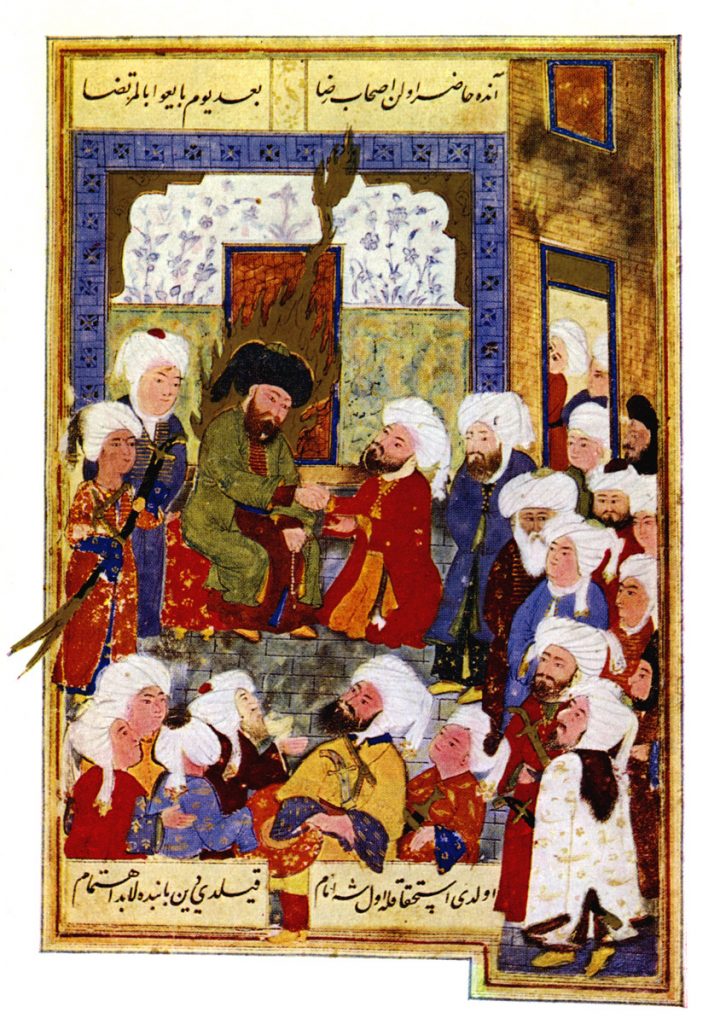 آنده حاضر اولن اصحاب رضا بعد یوم بایعوا بالمرتضا
اولدی استحقاقله اول شه امام قیلدی دین بابنده لابد اهتمام